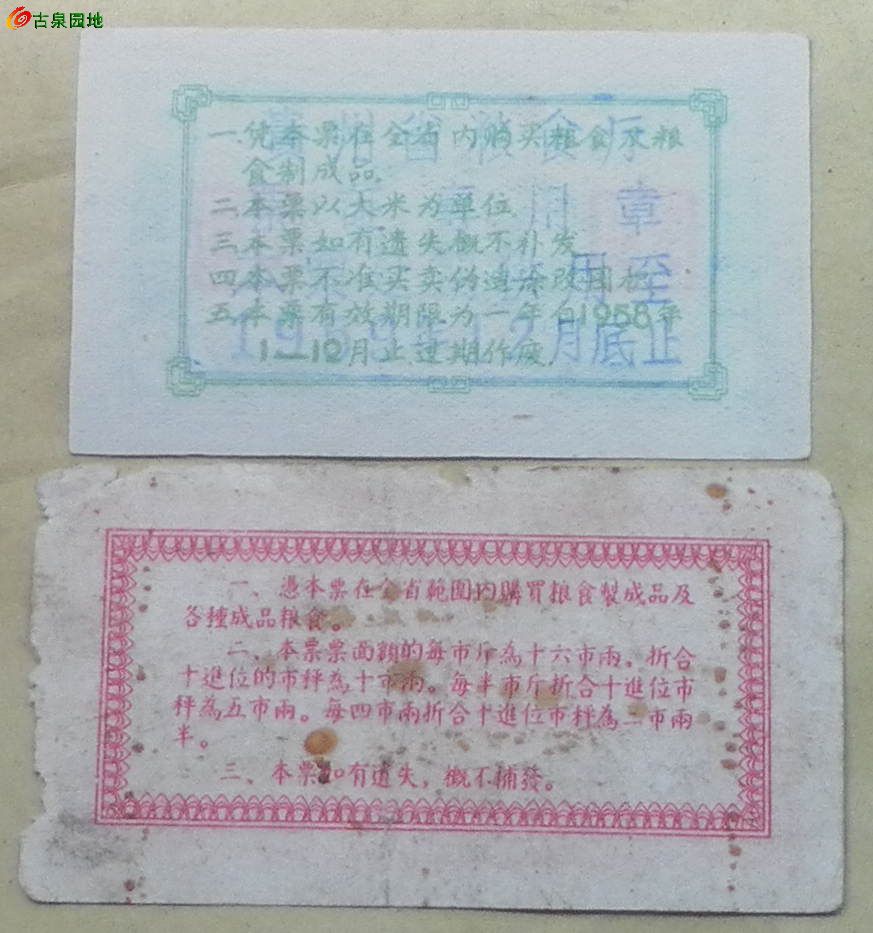 古泉园地
一.凭本票在全省内购买粮食及粮
食制成品.
二.本票以大米为单位.
三.本票如有遗失概不补发.
四.本票不准买卖伪造涂改
五.本票有效期限为一年自1958年
1—12月止过期作废.
省粮食厅
用章
用至
月底止
一、憑本票在全省範圍内購買粮食製成品及
各種成品粮食。
二、本票票面額的每市斤為十六市兩，折合
十進位的市秤為十市兩。每半市斤折合十進位市
秤為五市兩。每四市兩折合十進位市秤為二市兩
半。
三、本票如有遺失，概不補發。